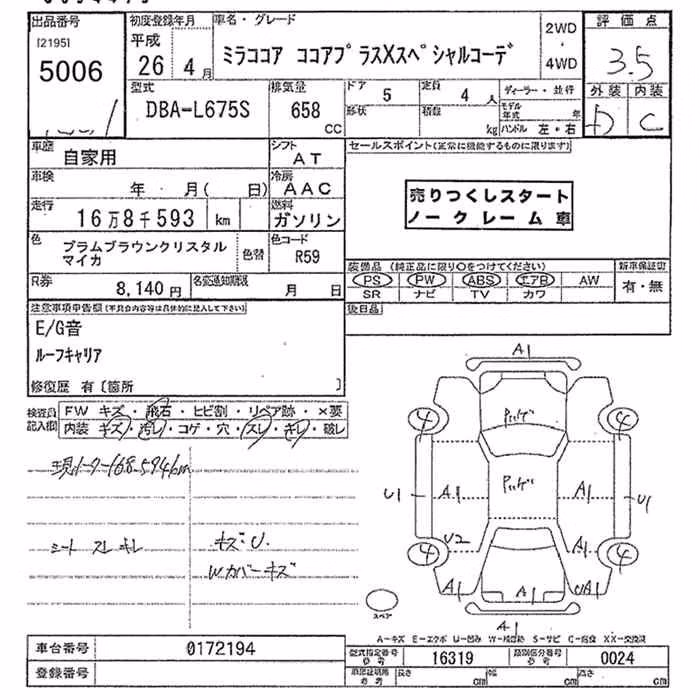 出品番号
[2195]
5006
初度登録年月
平成
26年 4月
車名・グレード
ミラココア ココアプラスXスペシャルコーデ
2WD
・
4WD
評価点
3.5
外装 内装
D C
型式
DBA-L675S
排気量
658
CC
ドア
5
定員
4 人
形状
積数
kg
ディーラー・並行
モデル年式 年
ハンドル 左・右
車歴
自家用
シフト
AT
車検
年 月( 日)
冷房
AAC
走行
16万8千593 km
燃料
ガソリン
色
プラムブラウンクリスタル
マイカ
色替
色コード
R59
R券
8,140円
名変通知期限
月 日
セールスポイント(正常に機能するものに限ります)
売りつくしスタート
ノークレーム車
装備品 (純正品に限り○をつけてください)
PS PW ABS エアB AW
SR ナビ TV カワ
新車保証書
有・無
後日品
注意事項申告欄(不具合内容等は具体的に記入して下さい)
E/G音
ルーフキャリア
修復歴 有〔箇所 〕
検査員
記入欄
FW キズ・飛石・ヒビ割・リペア跡・×要
内装 キズ・汚レ・コゲ・穴・スレ・キレ・破レ
現メーター168.594km
シート スレ キレ
キズ・U.
Wカバーキズ
A1
4 4
U1 A1 A1 U1
U2 A1
4 4
A1 A1 UA1
A1
スペア
A-キズ E-エクボ U-凹み
車台番号
0172194
登録番号
型式指定番号
参考
16319
類別区分番号
参考
0024
参考
長さ cm 幅 cm 高さ cm